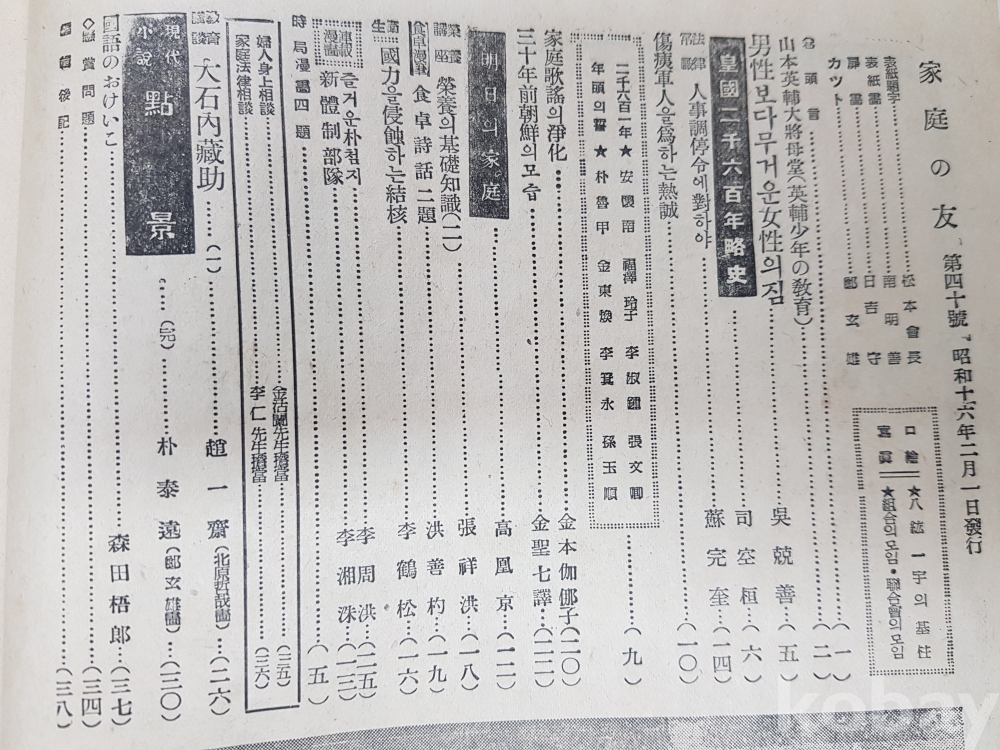 家庭の友 第四十號 昭和十六年二月一日發行
表紙題字 松本會長
表紙畵 南明善
扉畵 日吉守
カット 鄭玄雄
口繪 ★八紘一宇の基柱
寫眞 ★組合의모임・聯合會의모임
卷頭言 (一)
山本英輔大將母堂(英輔少年の敎育) (二)
男性보다무거운女性의짐 吳兢善 (五)
皇國二千六百年略史 司空桓 (六)
法律常識 人事調停令에對하야 蘇完奎 (一四)
傷痍軍人을爲하는熱誠 (一〇)
二千六百一年 年頭의誓 (九)
★安懷南 福澤玲子 李淑鍾 張文卿
★朴魯甲 金東煥 李軒永 孫玉順
家庭歌謠의淨化 金本伽倻子 (二〇)
三十年前朝鮮의모습 金聖七譯 (二二)
明日의家庭 高凰京 (一一)
榮養講座 榮養의基礎知識(二) 張祥洪 (一八)
食卓漫筆 食卓詩話二題 洪善杓 (一九)
衛生 國力을侵蝕하는結核 李鶴松 (一六)
連載漫畵
즐거운朴첨지 李周洪 (二五)
新體制部隊 李湘洙 (一三)
時局漫畵四題 (一五)
婦人身上相談 金活蘭先生擔當 (三五)
家庭法律相談 李仁先生擔當 (三六)
敎育講談 大石內藏助 (一) 趙一齋(北原哲哉畵) (二六)
現代小說 點景 (完) 朴泰遠(鄭玄雄畵) (三〇)
國語のおけいこ 森田梧郎 (三七)
◇懸賞問題 (三四)
編輯後記 (三八)
kobay